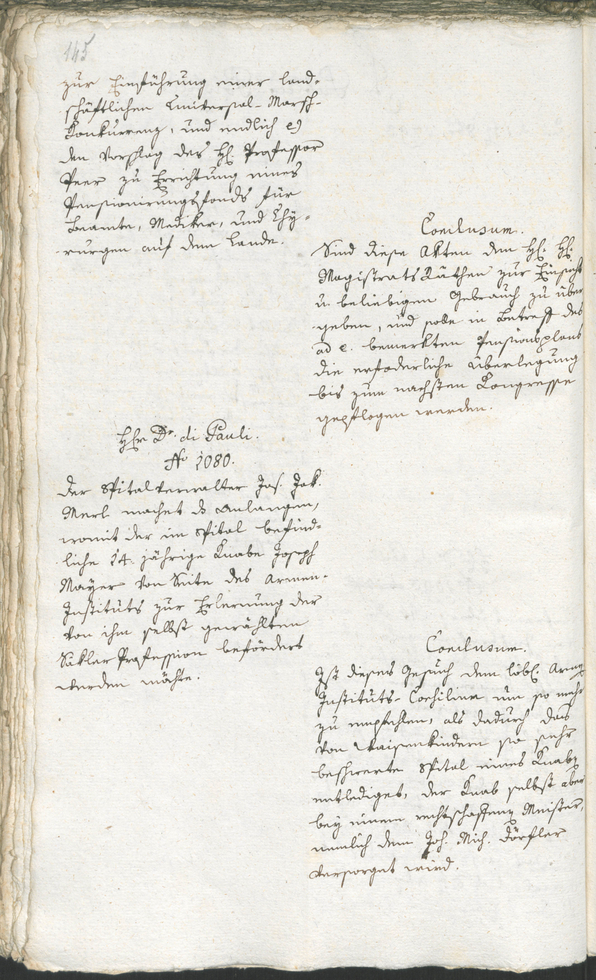 145
zur Einführung einer land-
schäftlichen Universal-Marsch-
Konkurrenz, und endlich e)
den Vorschlag des H: Professor
Peer zu Errichtung eines
Pensionirungsfonds für
Beamte, Mediker, und Chy-
rurgen auf dem Lande.
Conclusum.
Sind diese Akten den H: H:
Magistrats Räthen zur Einsicht
u. beliebigen Gebrauch zu über
geben, und solle in Betreff des
ad e. bemerkten Pensionsplans
die erfoderliche Überlegung
bis zum nächsten Kongresse
gepflogen werden.
Hr. Dr. di Pauli.
No 1080.
Der Spitalverwalter Jos. Jak.
Merl machet d Anlangen,
womit der im Spital befind-
liche 14. jährige Knabe Joseph
Mayer von Seite des Armen-
Instituts zur Erlernung der
von ihm selbst gewählten
Säkler Profession befördert
werden möchte.
Conclusum.
Ist dieses Gesuch dem löbl. Armen
Instituts-Consilium um so mehr
zu empfehlen, als dadurch das
von Waisenkindern so sehr
beschwerte Spital eines Knaben
entlediget, der Knab selbst aber
bey einem rechtschaffenen Meister,
nemlich dem Joh. Mich. Dörfler
versorget wird.